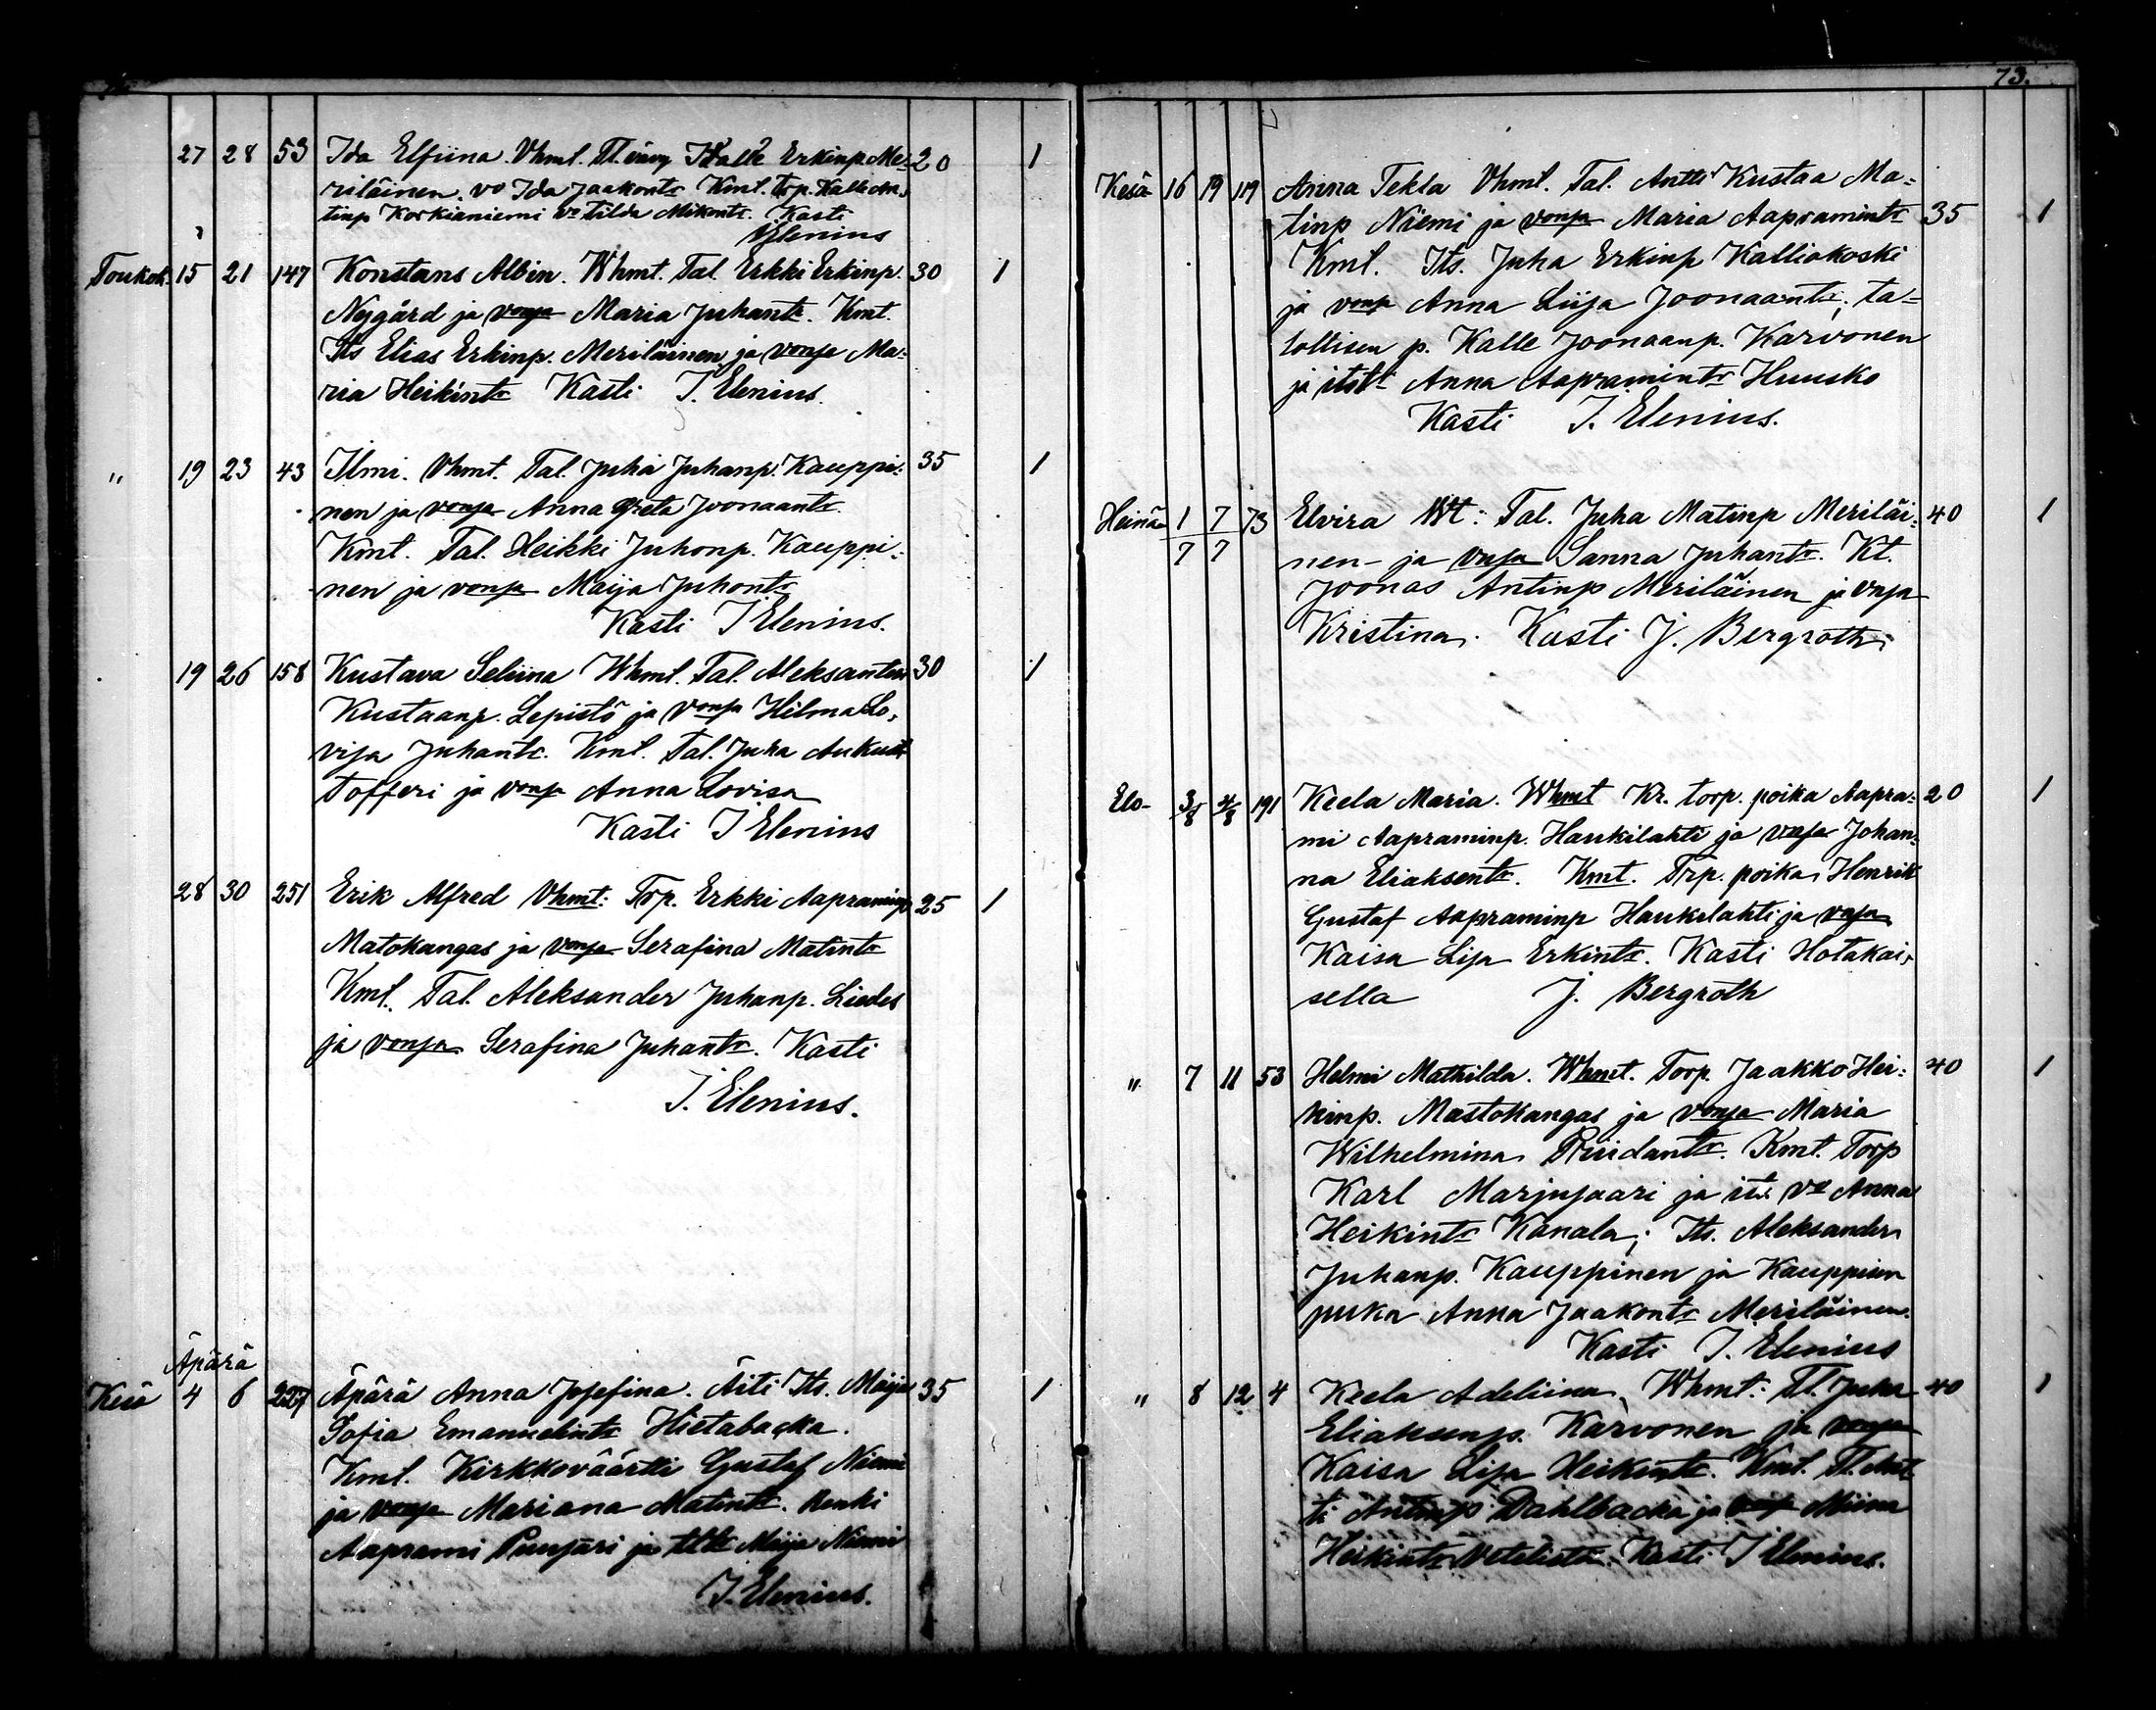 73.
27 28 53 Ida Elfiina. Vhml. Tl. vävy Kalle Erkinp Me= 20 1
riläinen. vo Ida Jaakontr Kml. Trp. Kalle An,
tinp Korkianiemi vo Tilda Mikontr. Kasti
Elenius
Toukok. 15 21 147 Konstans Albin. Whmt. Tal. Erkki Erkinp. 30 1
Nygård ja vonsa Maria Juhantr. Kmt.
Its Elias Erkinp. Meriläinen ja vonsa Ma=
ria Heikintr Kasti I. Elenius.
" 19 23 43 Ilmi. Vhmt. Tal. Juha Juhanp. Kauppi= 35 1
nen ja vonsa Anna Greta Joonaantr.
Kmt. Tal. Heikki Juhonp. Kauppi=
nen ja vonsa Maija Juhontr
Kasti I Elenius.
19 26 158 Kustava Seliina Whml. Tal. Aleksanteri 30 1
Kustaanp. Lepistö ja vonsa Hilma Lo,
visa Juhantr. Kml. Tal. Juha Aukust
Tofferi ja vonsa Anna Lovisa
Kasti I Elenius
28 30 251 Erik Alfred Vhmt: Torp. Erkki Aapraminp 25 1
Matokangas ja vonsa Serafina Matintr
Kml. Tal. Aleksander Juhanp. Liedes
ja vonsa Serafina Juhantr. Kasti
I. Elenius.
Äpärä
Kesä 4 6 227 Äpärä Anna Josefina. Äiti Its. Maija 35 1
Sofia Emanuelintr Hietabacka.
Kml. Kirkkoväärtti Gustaf Niemi
ja vonsa Mariana Matintr. Renki
Aaprami Puusaari ja tltr Maija Niemi
I. Elenius.
Kesä 16 19 119 Anna Tekla Vhml. Tal. Antti Kustaa Ma=
tinp Niemi ja vonsa Maria Aapramintr 35 1
Kml. Its. Juha Erkinp Kalliokoski
ja vonsa Anna Liisa Joonaantr, ta=
lollisen p. Kalle Joonaanp. Karvonen
ja itstr Anna Aapramintr Huusko
Kasti I. Elenius.
Heinä 1 7 73 Elvira Wt: Tal. Juha Matinp Meriläi= 40 1
7 7 nen ja vnsa Sanna Juhantr. Kt.
Joonas Antinp Meriläinen ja vnsa
Kristina. Kasti J. Bergroth.
Elo- 3/8 4/8 191 Keela Maria. Whmt Kr. torp. poika Aapra= 20 1
mi Aapraminp. Haukilahti ja vnsa Johan=
na Eliaksentr. Kmt. Trp. poika Henrik
Gustaf Aapraminp Haukilahti ja vnsa
Kaisa Lisa Erkintr. Kasti Hotakai,
sella J. Bergroth
" 7 11 53 Helmi Mathilda. Whmt. Torp. Jaakko Hei= 40 1
kinp. Mastokangas ja vonsa Maria
Wilhelmina Priidantr. Kmt. Torp
Karl Marjusaari ja its vo Anna
Heikintr Kanala; Its. Aleksander
Juhanp. Kauppinen ja Kauppisen
puka Anna Jaakontr Meriläinen.
Kasti I. Elenius
" 8 12 4 Keela Adeliina Whmt: Tl. Juha 40 1
Eliaksenp. Karvonen ja vonsa
Kaisa Lisa Heikintr. Kml. Tl. Ant
ti Antinp Dahlbacka ja vonsa Miina
Heikintr Vetelistä. Kasti I Elenius.